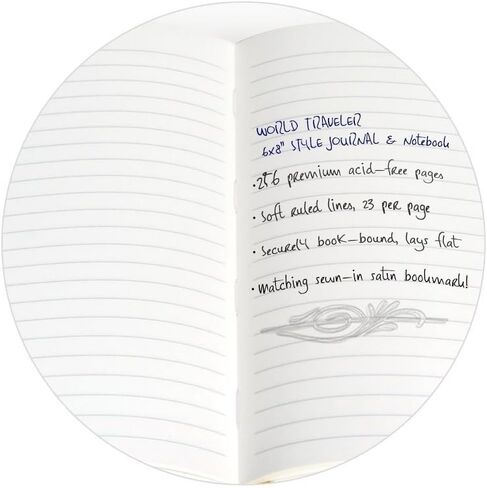 WORLD TRAVELER
6x8" STYLE JOURNAL & Notebook
• 256 premium acid-free pages
• Soft ruled lines, 23 per page
• Securely book-bound, lays flat
• matching sewn-in satin bookmark!